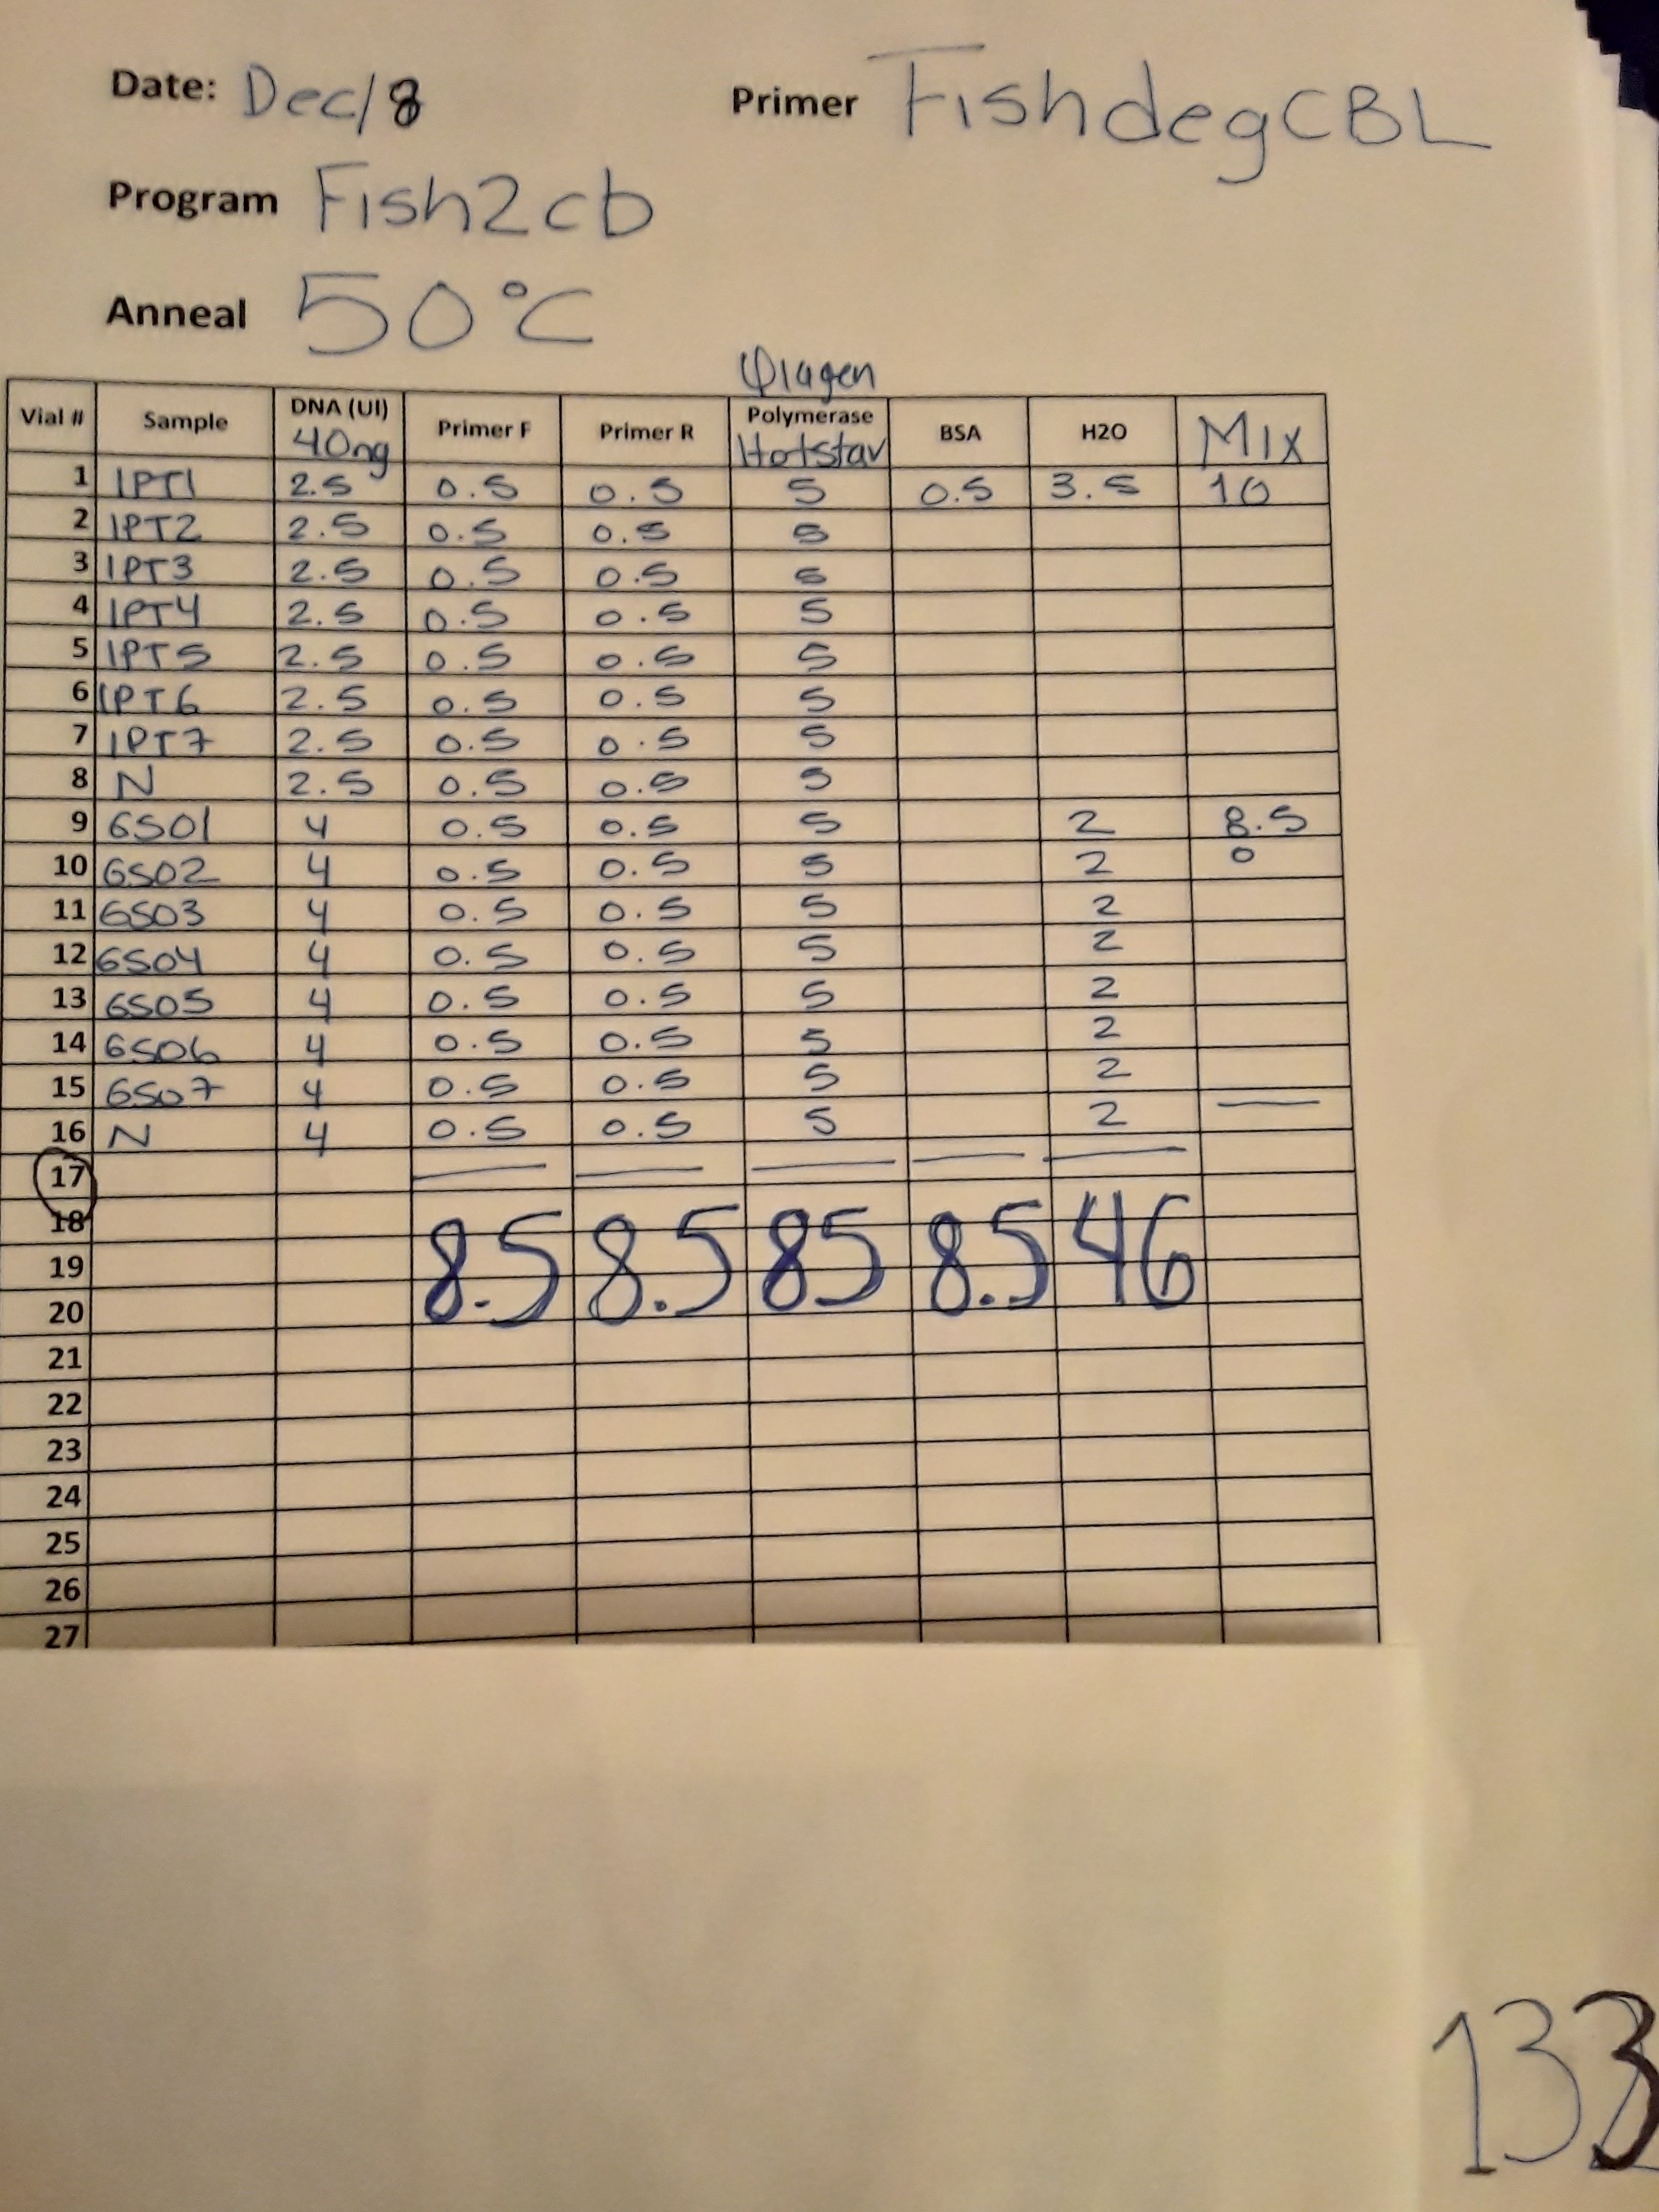 Date: Dec/8 Primer FishdegCBL
Program Fish2cb
Anneal 50°C
Qiagen
Vial # Sample DNA (Ul) 40ng Primer F Primer R Polymerase Hotstar BSA H2O Mix
1 IPT1 2.5 0.5 0.5 5 0.5 3.5 10
2 IPT2 2.5 0.5 0.5 5
3 IPT3 2.5 0.5 0.5 5
4 IPT4 2.5 0.5 0.5 5
5 IPT5 2.5 0.5 0.5 5
6 IPT6 2.5 0.5 0.5 5
7 IPT7 2.5 0.5 0.5 5
8 N 2.5 0.5 0.5 5
9 GS01 4 0.5 0.5 5 2 8.5
10 GS02 4 0.5 0.5 5 2 0
11 GS03 4 0.5 0.5 5 2
12 GS04 4 0.5 0.5 5 2
13 GS05 4 0.5 0.5 5 2
14 GS06 4 0.5 0.5 5 2
15 GS07 4 0.5 0.5 5 2
16 N 4 0.5 0.5 5 2
17
18
19 8.5 8.5 85 8.5 46
20
21
22
23
24
25
26
27
133